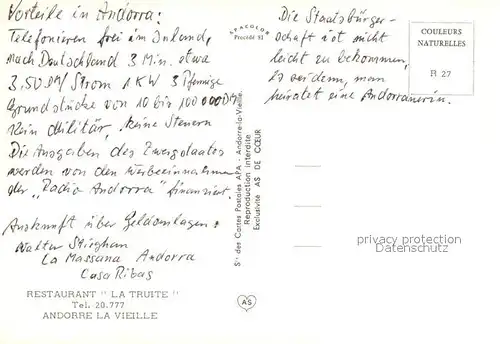 Vorteile in Andorra:
Telefonieren frei im Inland,
nach Deutschland 3 Min. etwa
3,50 DM/ Strom 1 KW 3 Pfennige
Grundstücke von 10 bis 100 000 DM
Kein Militär, keine Steuern
Die Ausgaben des Zwergstaates
werden von den Werbeeinnahmen
der "Radio Andorra" finanziert.
Auskunft über Geldanlagen:
Walter
La Massana Andorra
Casa Ribas
RESTAURANT " LA TRUITE "
Tel. 20.777
ANDORRE LA VIEILLE
APACOLOR
Procédé 51
Sté des Cartes Postales APA - Andorre-la-Vieille.
Reproduction interdite
Exclusivité AS DE CŒUR
AS
Die Staatsbürger-
schaft ist nicht
leicht zu bekommen,
Es sei denn, man
heiratet eine Andorranerin.
COULEURS
NATURELLES
R 27
privacy protection
Oldthing.de